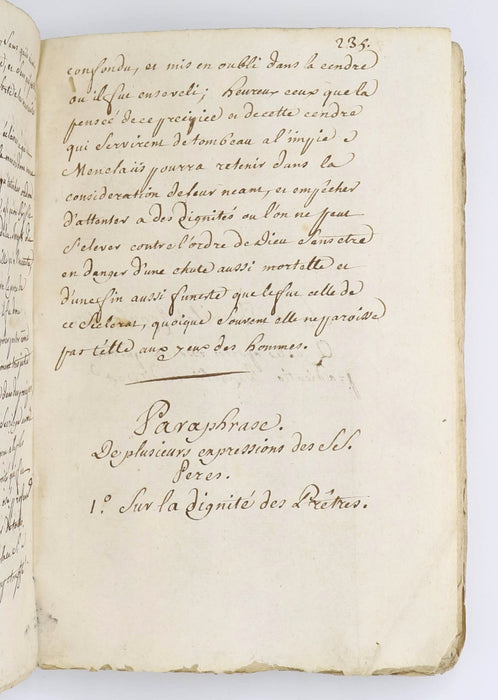 235.
confondu, et mis en oubli dans la cendre
ou il fut enseveli; heureux ceux que la
pensée de ce precipice et de cette cendre
qui servirent de tombeau a l'impie
Menelaüs pourra retenir dans la
consideration de leur neant, et empêcher
d'attenter a des dignités ou l'on ne peut
s'elever contre l'ordre de Dieu sans etre
en danger d'une chute aussi mortelle et
d'une fin aussi funeste que le fut celle de
ce scelerat, quoique souvent elle ne paroisse
pas telle aux yeux des hommes.
Paraphrase.
De plusieurs expressions des SS.
Peres.
1.º Sur la dignité des Prêtres.